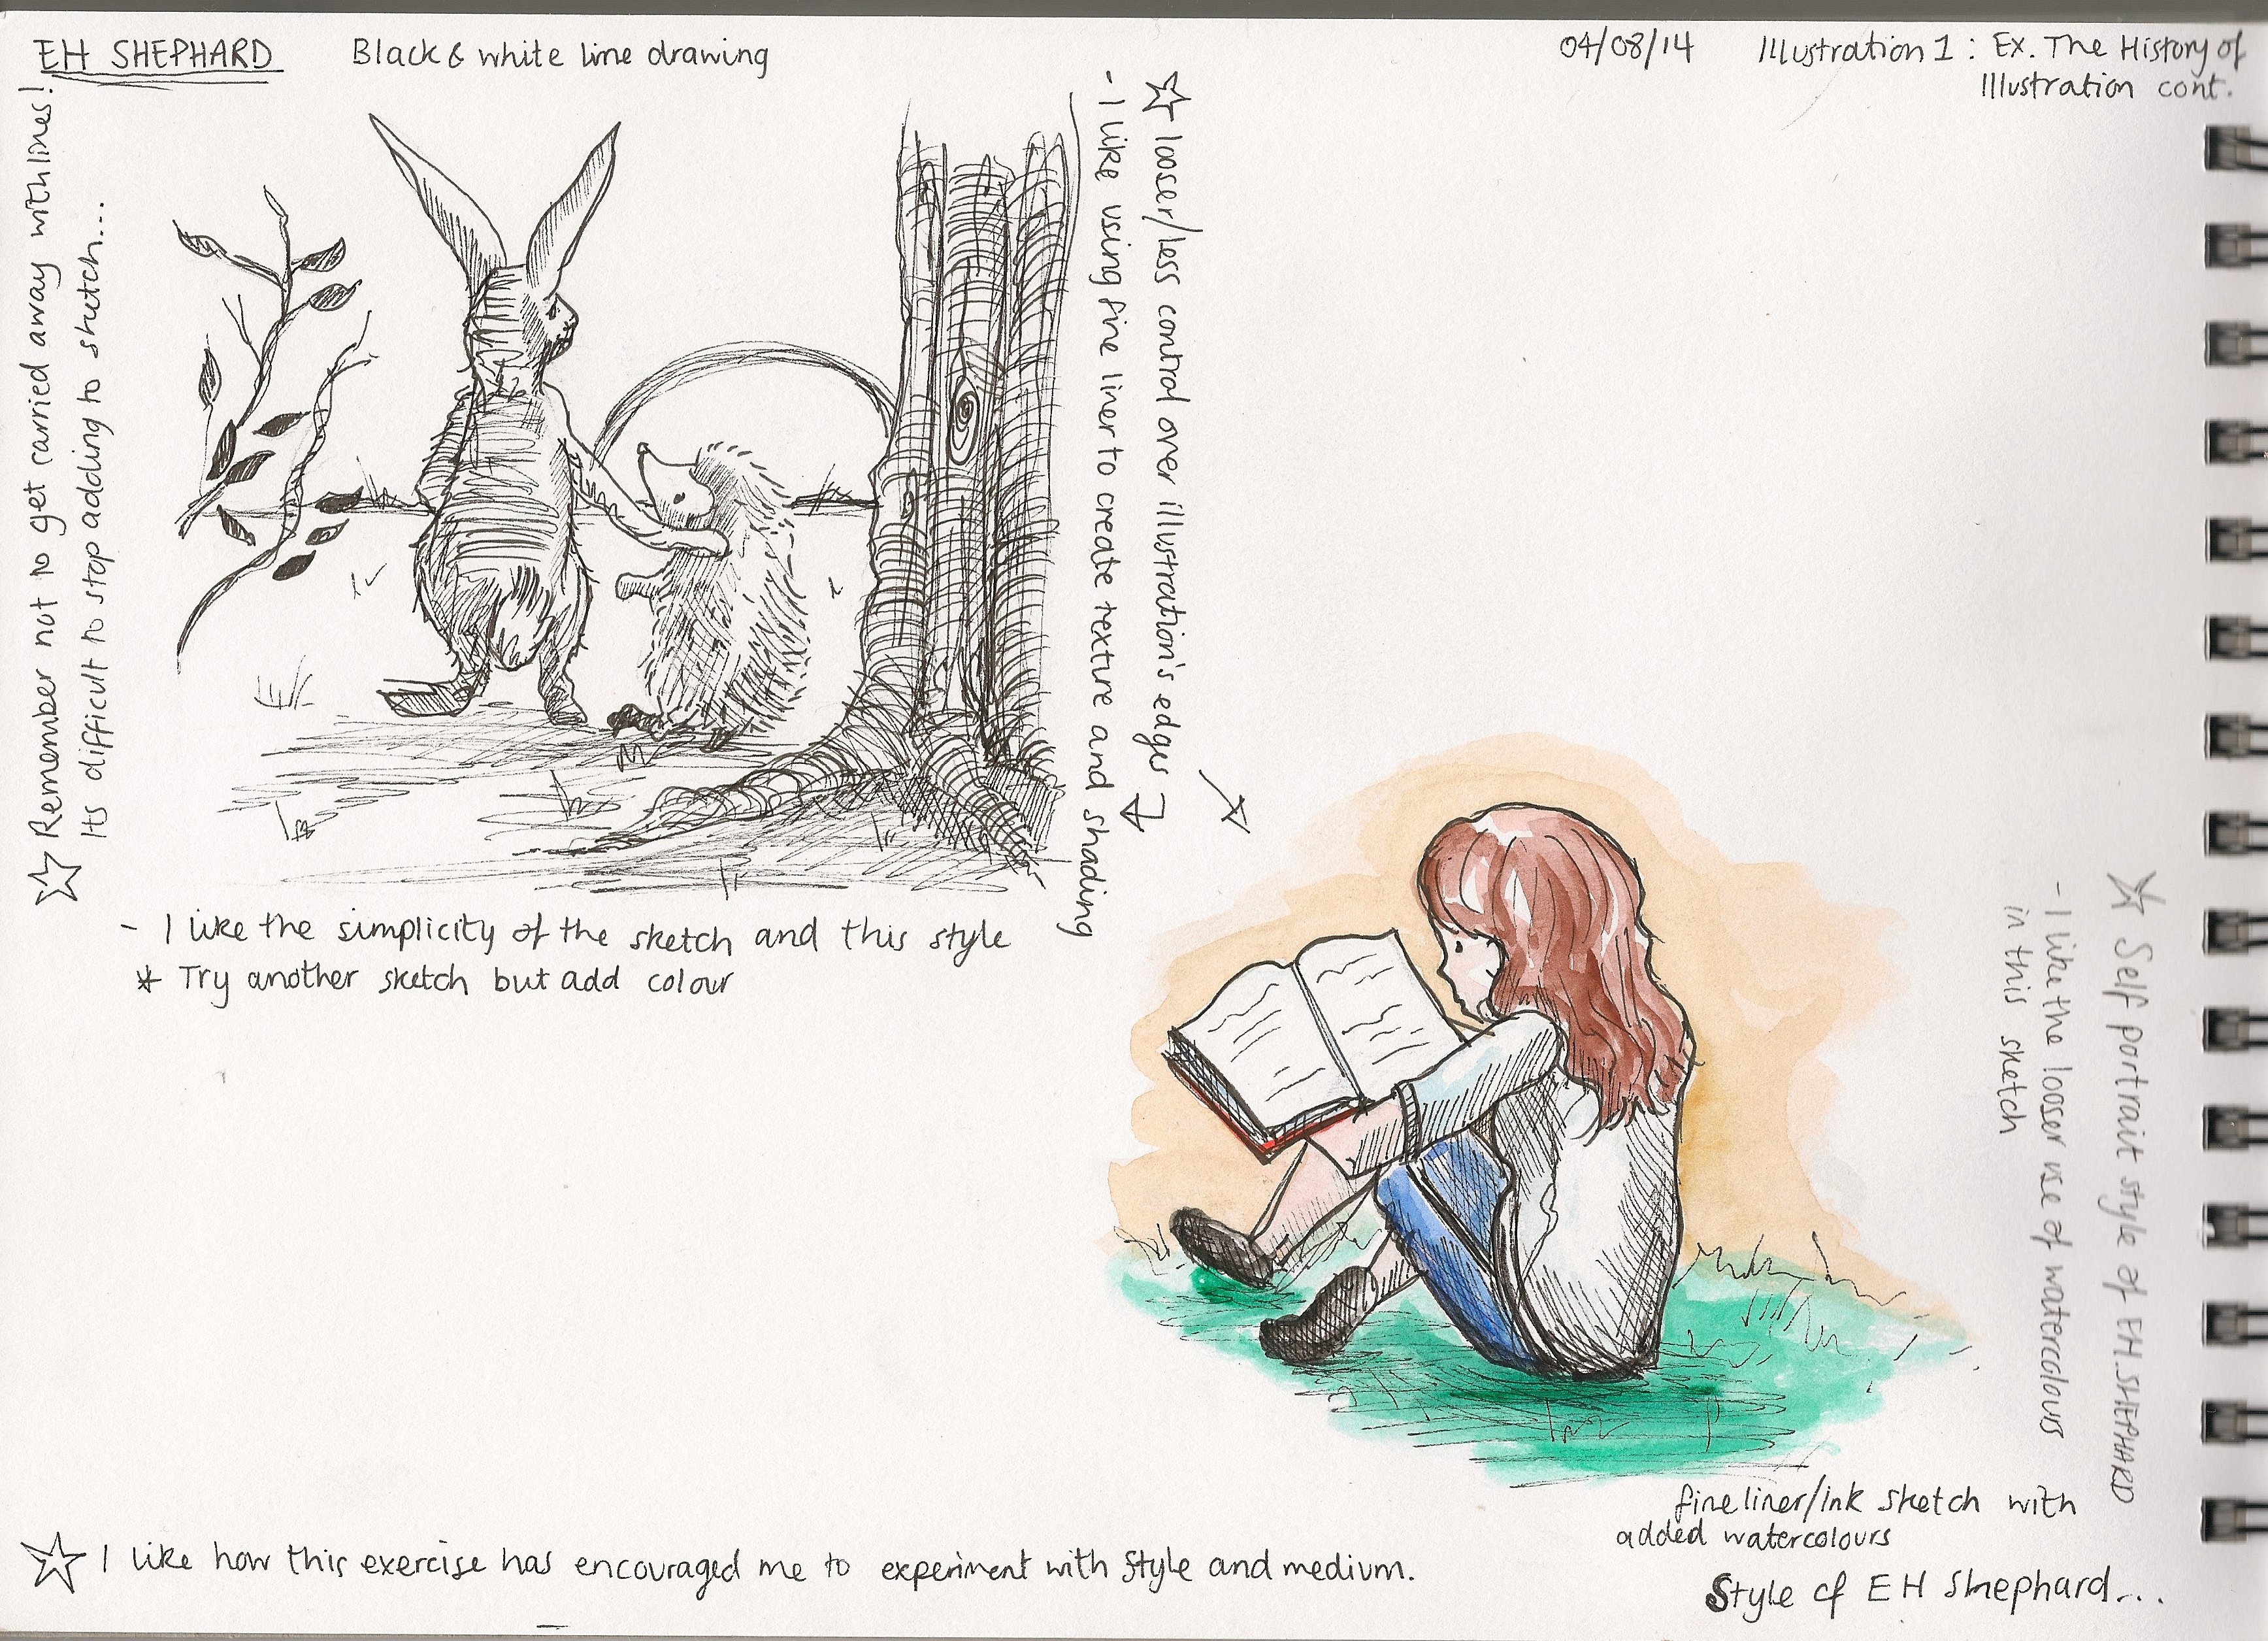 EH SHEPHARD
Black & white line drawing
04/08/14
Illustration 1 : Ex. The History of
Illustration cont.
Remember not to get carried away with lines!
Its difficult to stop adding to sketch...
looser/less control over illustration's edges
- I like using fine liner to create texture and shading
- I like the simplicity of the sketch and this style
* Try another sketch but add colour
Self portrait style of EH.SHEPHARD
- I like the looser use of watercolours
in this sketch
fineliner/ink sketch with
added watercolours
Style of EH Shephard...
I like how this exercise has encouraged me to experiment with style and medium.